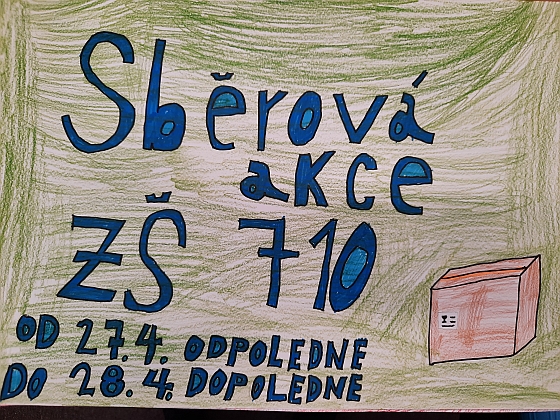 Sběrová
akce
ZŠ 710
OD 27.4. ODPOLEDNE
DO 28.4. DOPOLEDNE